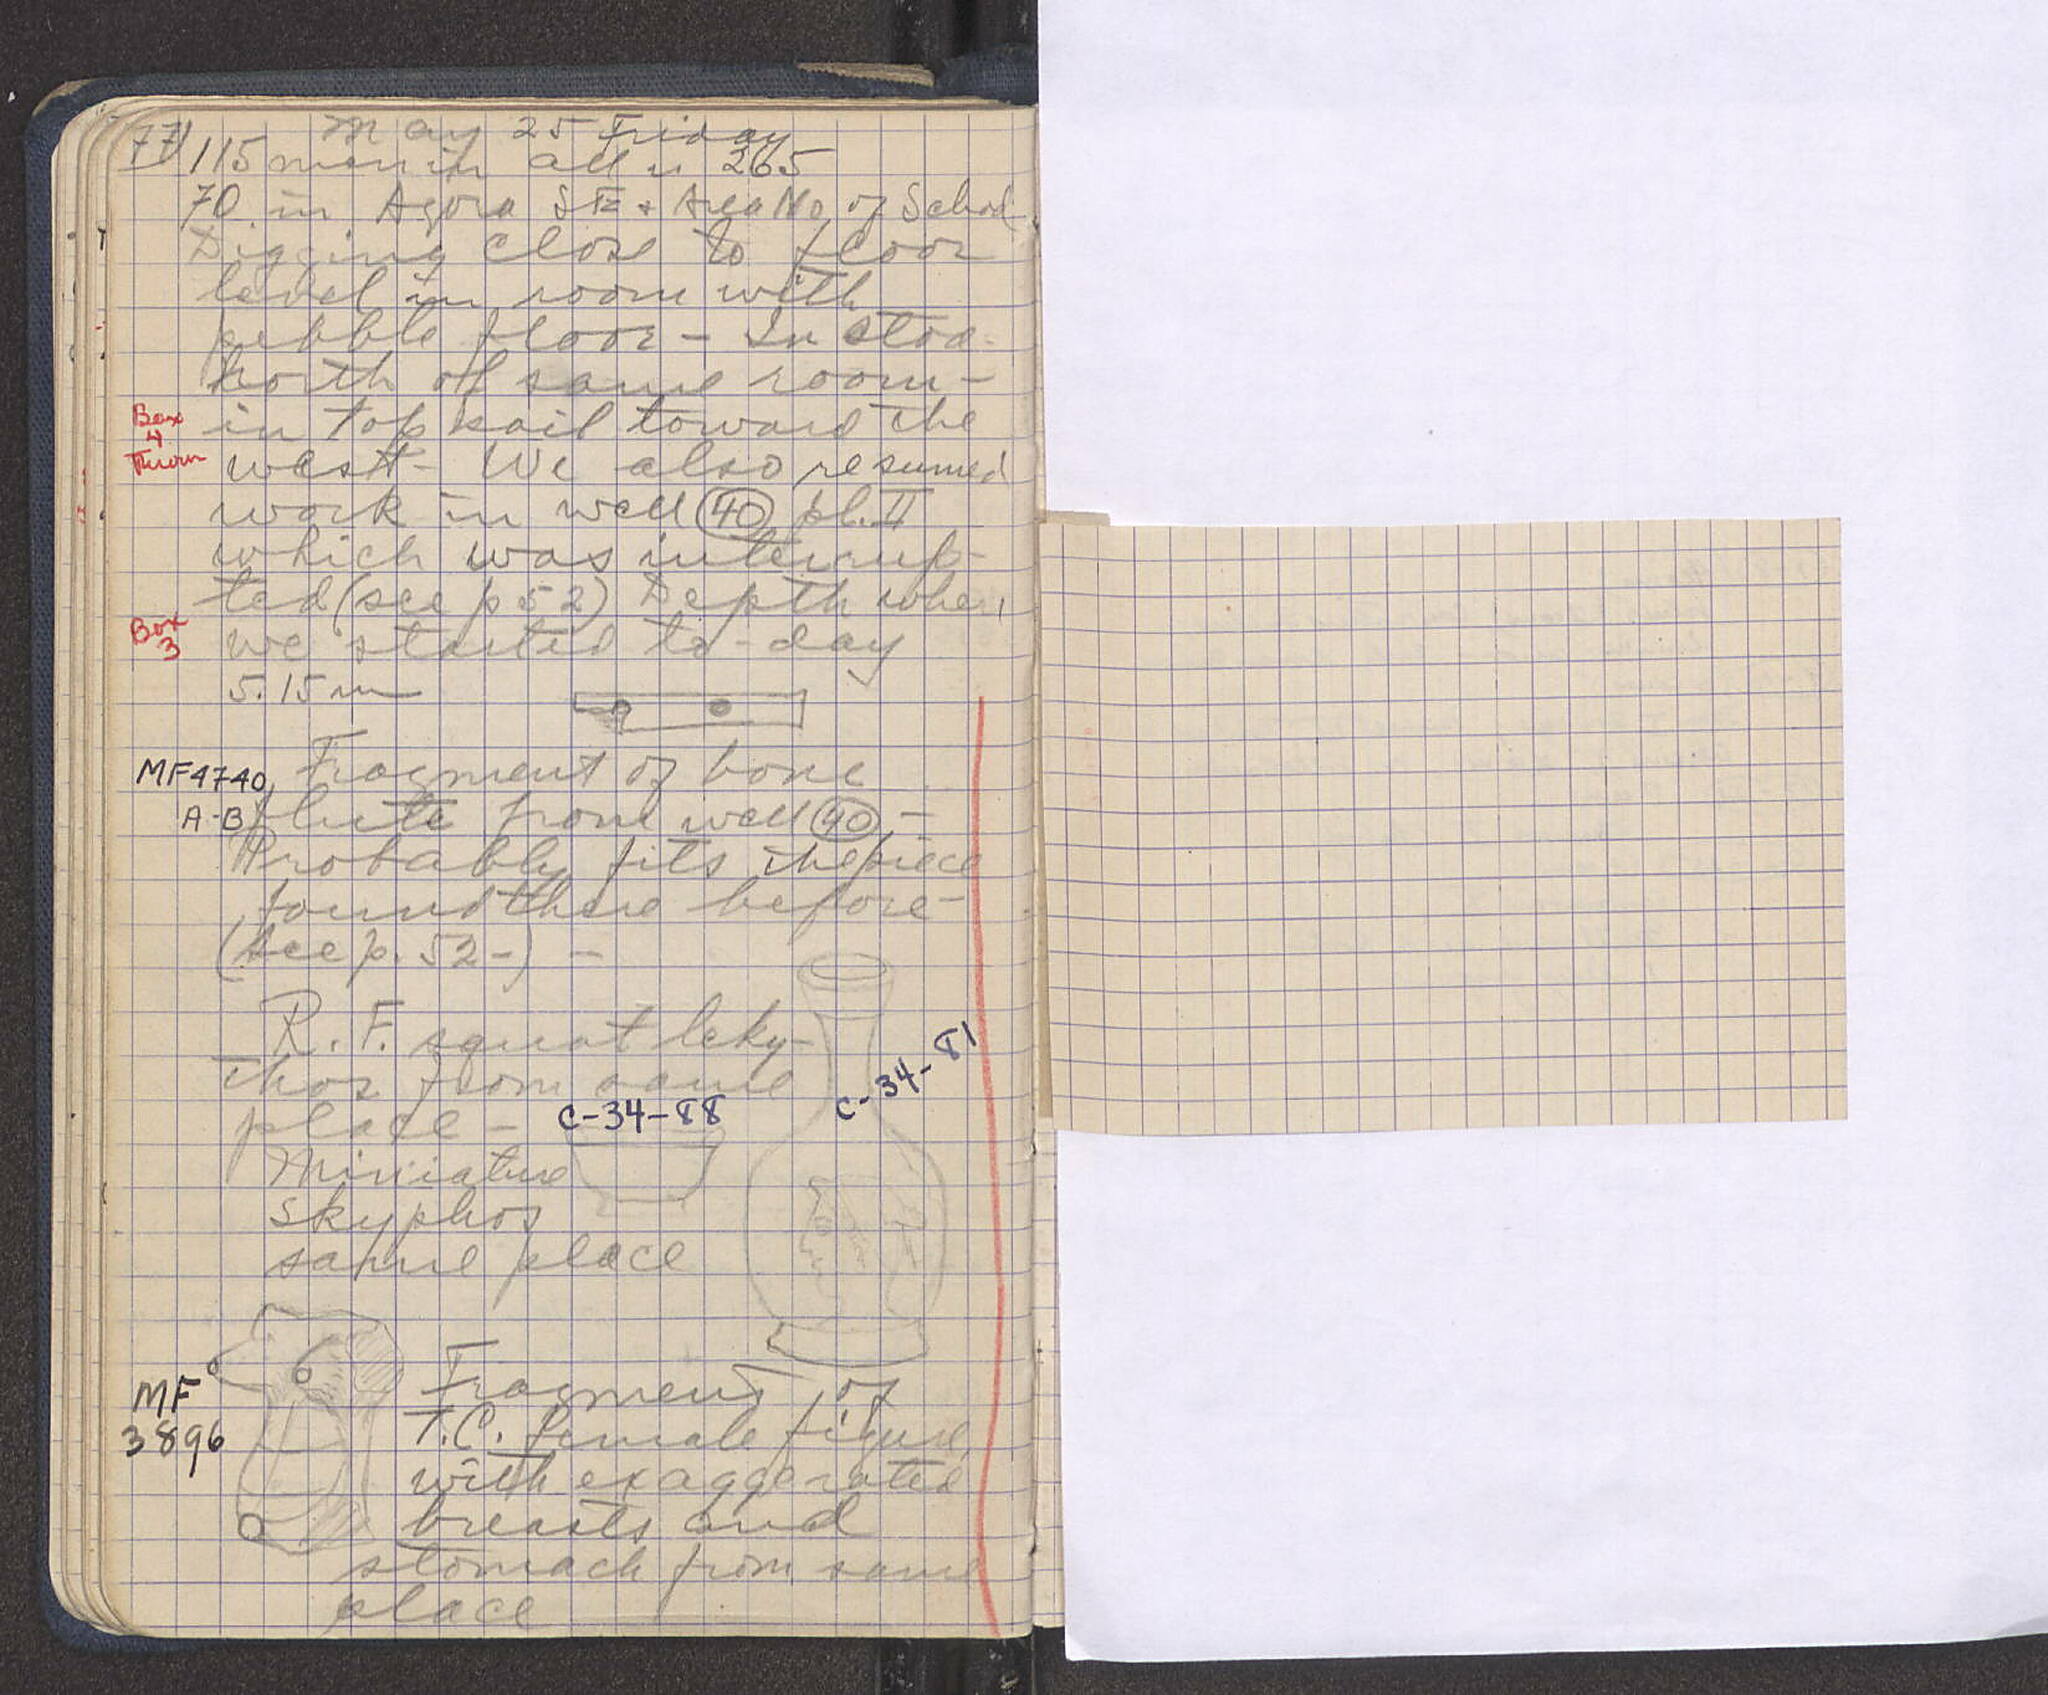 77 May 25 Friday
115 men in all " 265
70 in Agora SE + Area No of School
Digging close to floor
level in room with
pebble floor - In stoa
north of same room -
Box 4 Thrown
in top soil toward the
west - We also resumed
work in well 40 pl. II
which was interrup-
ted (see p 52) Depth when
Box 3
we started to-day
5.15 m
MF4740 A-B
Fragment of bone
flute from well 40 -
Probably fits the piece
found there before -
(see p. 52 -) -
R. F. squat leky-
thos from same
place -
C-34-88
C-34-81
Miniature
skyphos
same place
MF 3896
Fragment of
T.C. female figure
with exaggerated
breasts and
stomach from same
place